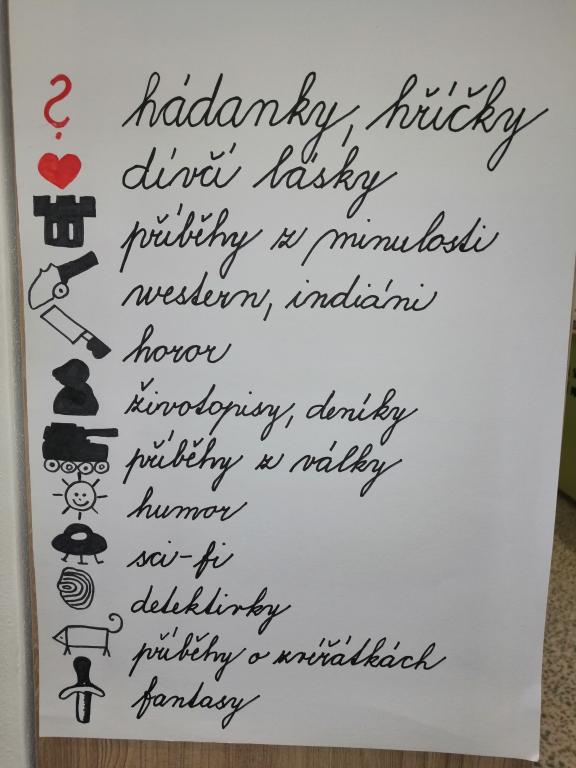 hádanky, hříčky
dívčí lásky
příběhy z minulosti
western, indiáni
horor
životopisy, deníky
příběhy z války
humor
sci-fi
detektivky
příběhy o zvířátkách
fantasy